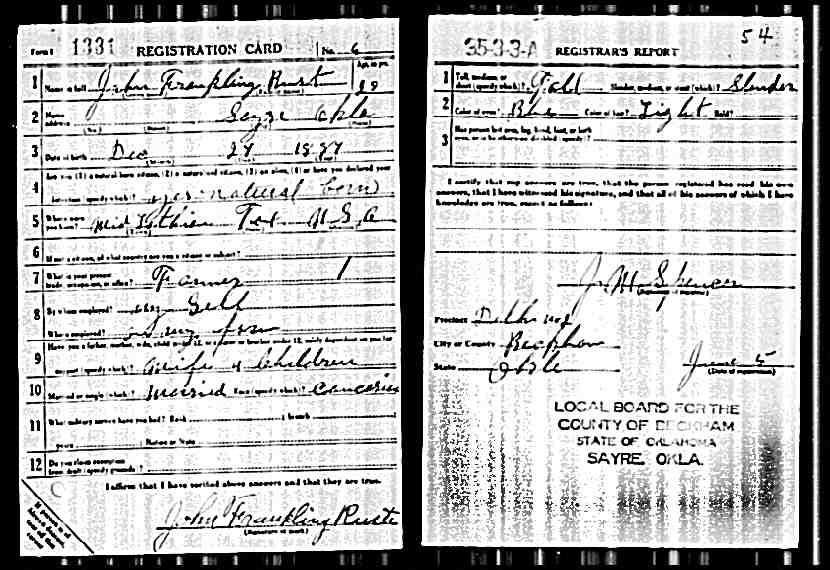 Form 1 1331 REGISTRATION CARD No. 6
1 Name in full John Frankling Rust Age, in yrs. 29
2 Home address Sayre Okla
(No.) (Street) (State)
3 Date of birth Dec 27 1887
4 Are you (1) a natural born citizen, (2) a naturalized citizen, (3) an alien, (4) or have you declared your
intention (specify which)? natural born
5 Where were you born? Mid Lothian Tex U.S.A
6 If not a citizen, of what country are you a citizen or subject?
7 What is your present trade, occupation, or office? Farmer
8 By whom employed? Self
Where employed? farm
9 Have you a father, mother, wife, child under 12, or a sister or brother under 12, solely dependent on you for
support (specify which)? Wife & Children
10 Married or single (which)? Married Race (specify which)? Caucasian
11 What military service have you had? Rank branch
years Nation or State
12 Do you claim exemption from draft (specify grounds)?
I affirm that I have verified above answers and that they are true.
John Frankling Rust
(Signature or mark)
35-3-3-A REGISTRAR'S REPORT 54
1 Tall, medium, or short (specify which)? Tall Slender, medium, or stout (which)? Slender
2 Color of eyes? Blue Color of hair? Light Bald?
3 Has person lost arm, leg, hand, foot, or both
eyes, or is he otherwise disabled (specify)?
I certify that my answers are true, that the person registered has read his own
answers, that I have witnessed his signature, and that all of his answers of which I have
knowledge are true, except as follows:
J. M. Spencer
(Signature of registrar)
Precinct Delhi
City or County Beckham
State Okla June 5
(Date of registration)
LOCAL BOARD FOR THE
COUNTY OF BECKHAM
STATE OF OKLAHOMA
SAYRE, OKLA.